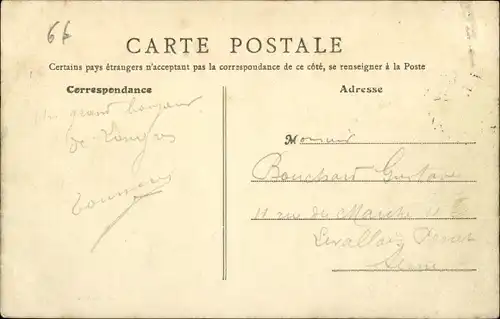 66
CARTE POSTALE
Certains pays étrangers n'acceptant pas la correspondance de ce côté, se renseigner à la Poste
Correspondance
Un grand bonjour
de
Adresse
Monsieur
Bouchard Gustave
11 rue du Marche
Levallois Perret
Seine